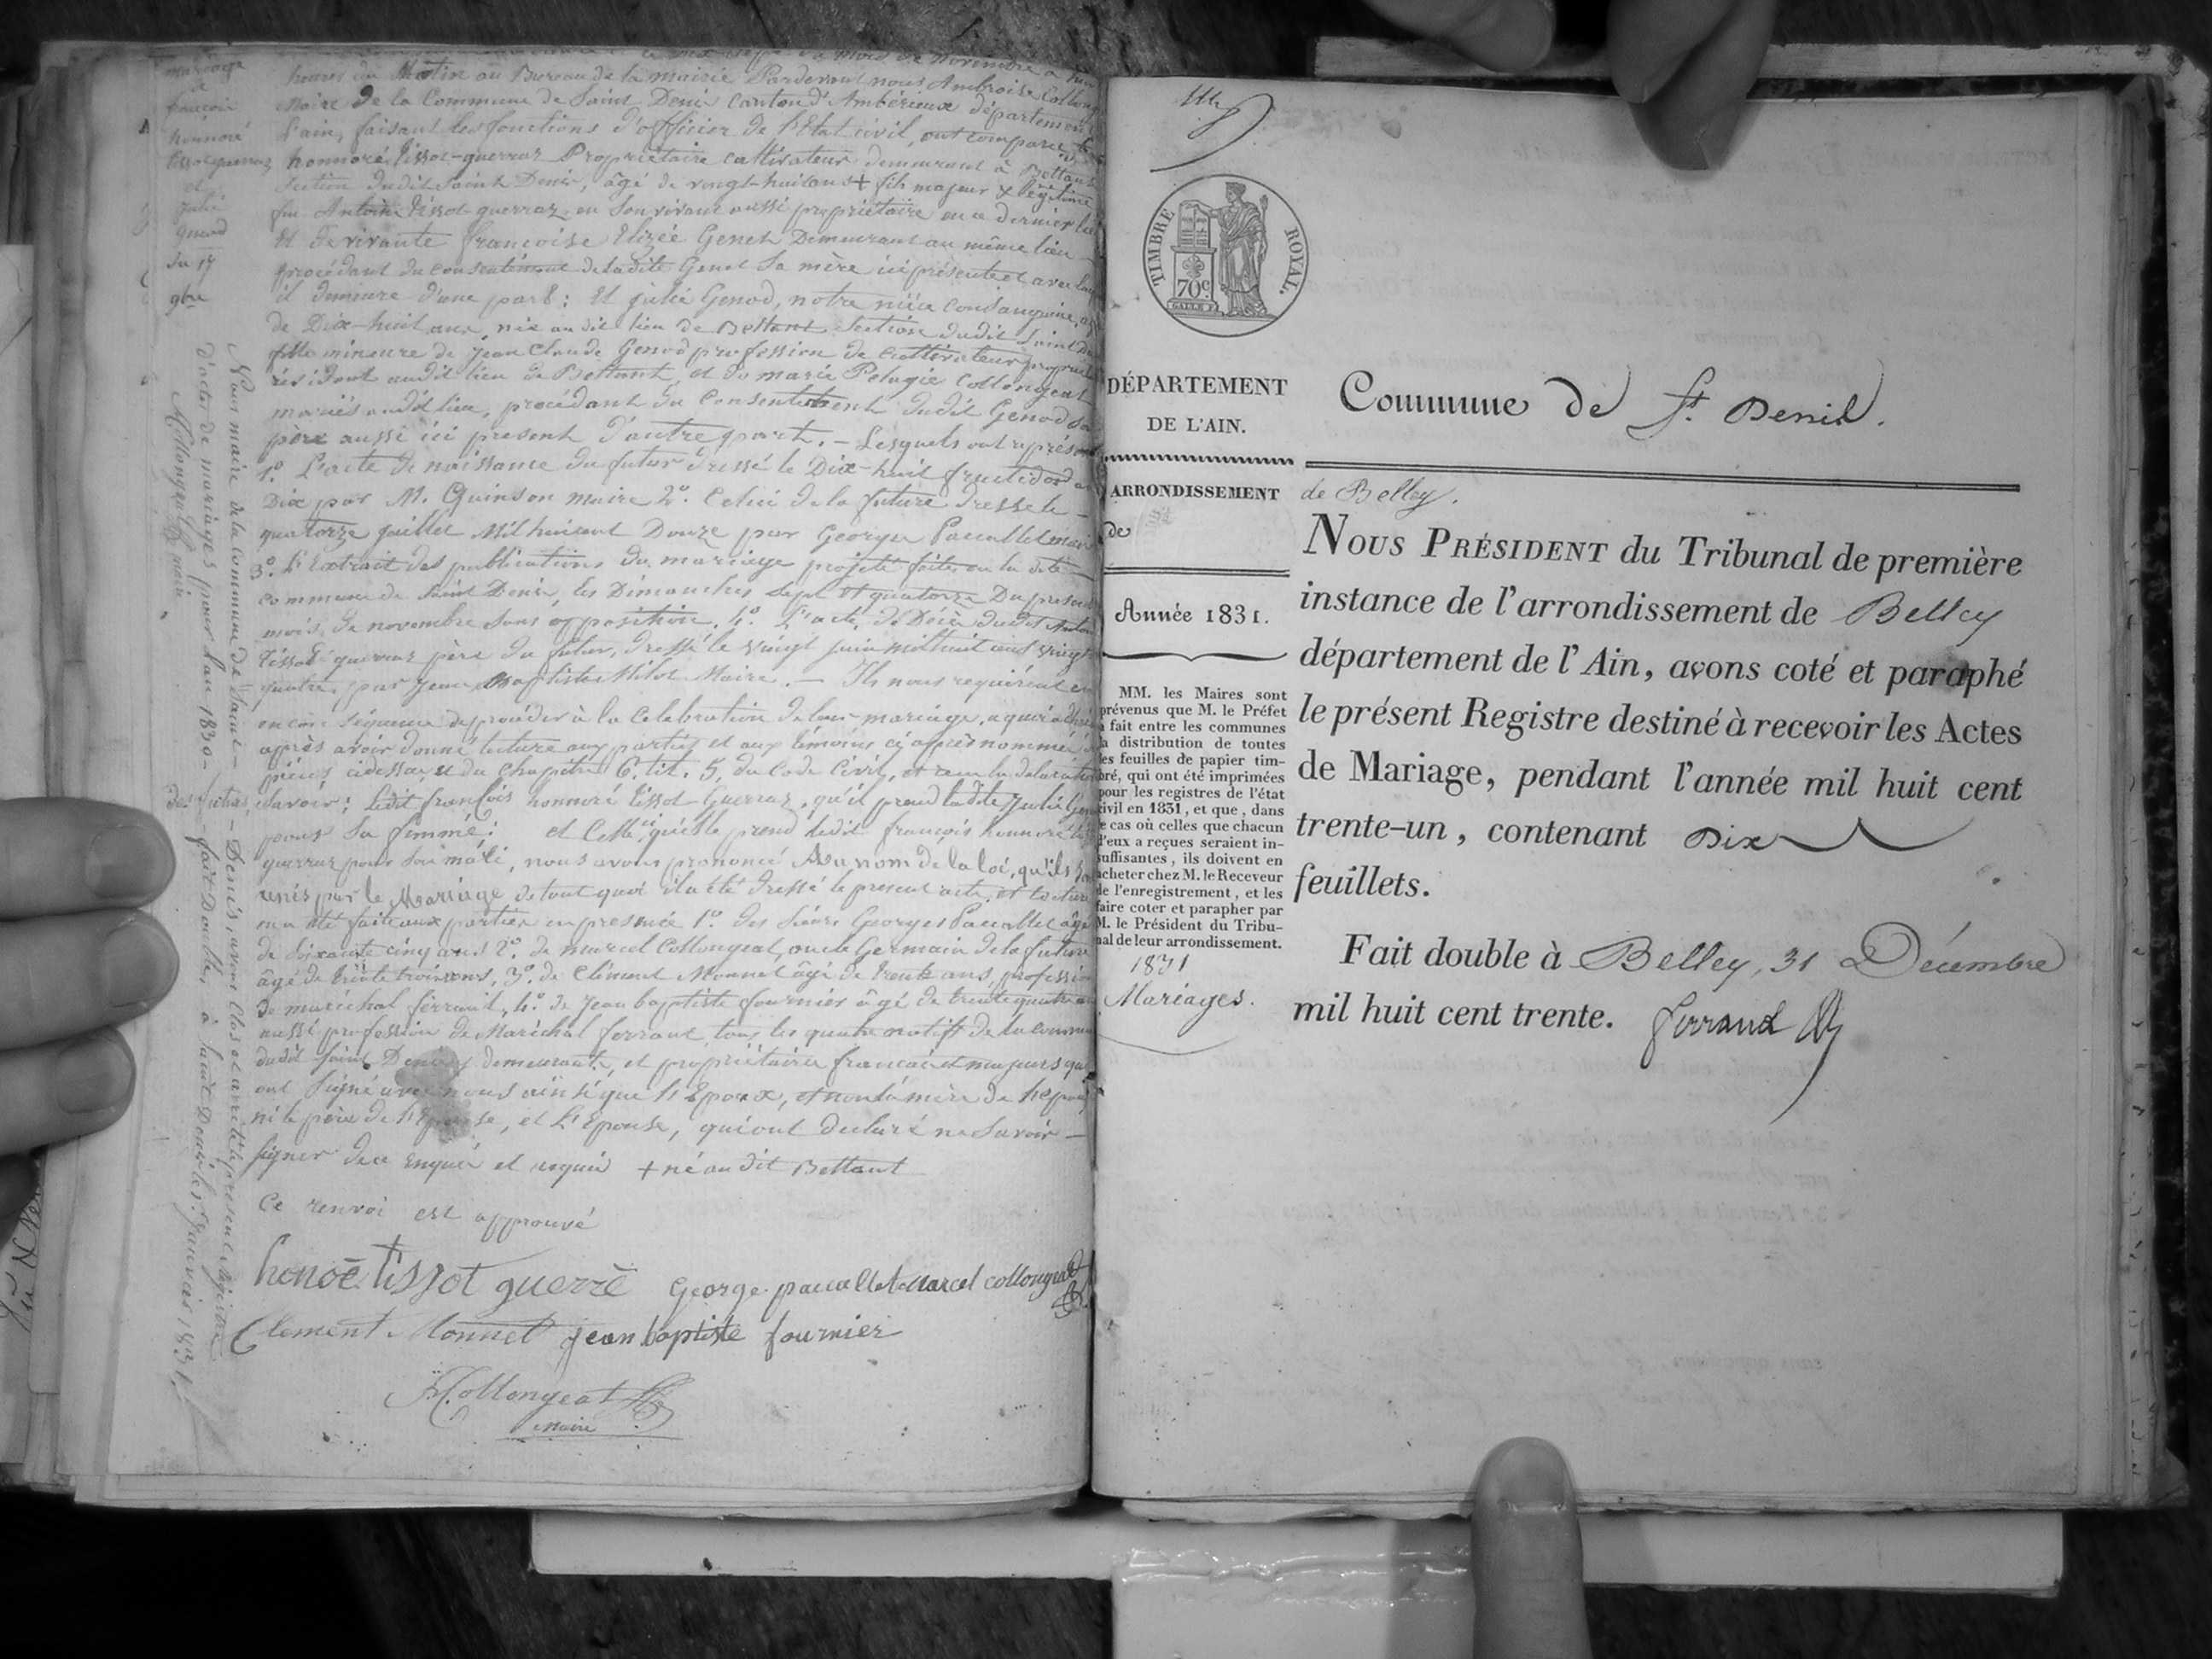 mariage
à
françois
honnoré
tissot guerraz
et
julie
genod
du 17
9bre
mois de novembre à
heures du Matin au Bureau de la mairie Pardevant nous Ambroise Collong
Maire De la Commune de Saint Denis Canton d'Ambérieux département
l'ain, faisant les fonctions d'officier de l'Etat civil, ont comparu
honnoré tissot-guerraz Propriétaire cultivateur demeurant à Bettant
Section dudit Saint Denis, âgé de vingt-huit ans + fils majeur & légitime
feu Antoine tissot guerraz en Son vivant aussi propriétaire en ce dernier lieu
Et de vivante françoise Elizée Genet Demeurant au même lieu
procédant du consentement de ladite Genet Sa mère ici présente et avec
il demeure d'une part : Et julie Genod, notre nièce consanguine,
de Dix-huit ans, née au dit lieu de Bettant Section dudit Saint De
fille mineure de jean Claude Genod profession de cultivateur propriet
résidant audit lieu de Bettant, et de marie Pelagie Collongeat
mariés audit lieu, procédant du Consentement dudit Genod Son
père aussi ici présent d'autre part. - Lesquels ont représen
1º. L'acte de naissance du futur dressé le Dix-huit fructidor
Dix par M. Quinson maire 2º. Celui de la future dressé le -
quatorze juillet Mil huit cent Douze par George Pacallet mair
3º. l'Extrait des publications du mariage projeté faites en la dite
commune de Saint Denis, les Dimanches Sept et quatorze Du présent
mois de novembre Sans opposition. 4º. L'acte de Décès dudit Antoi
tissot guerraz père du futur, dressé le vingt juin mil huit cent vingt
quatre, par jean Baptiste Milot Maire. - Ils nous requièrent en
conséquence de procéder à la Célébration de leur mariage, a quoi adher
après avoir donné lecture aux parties et aux témoins ci après nommés
pièces cidessus, et du Chapitre 6. tit. 5, du Code Civil, et reçu la déclaration
des futurs Savoir : ledit françois honnoré tissot-Guerraz, qu'il prend ladite Julie Gen
pour Sa femme ; et Celle ci, qu'elle prend ledit françois honnoré
guerraz pour Son mari, nous avons prononcé Au nom de la loi, qu'ils
unis par le Mariage de tout quoi il a été dressé le présent acte, et lecture
en a été faite aux parties en présence 1º. des Sieurs Georges Pacallet âgé
de Soixante cinq ans 2º. de marcel Collongeat, oncle Germain de la future
âgé de trente trois ans, 3º. de Clément Monnet âgé de trente ans, profession
de maréchal ferrant, 4º. de Jean baptiste fournier âgé de trente quatre an
aussi profession de Maréchal ferrant, tous les quatre natifs de la commun
dudit Saint Denis y demeurants, et propriétaires français et majeurs qui
ont Signé avec nous ainsi que l'Epoux, et non la mère de l'époux
ni le père de l'Epouse, et l'Epouse, qui ont déclaré ne Savoir -
signer de ce Enquis et requis + né au dit Bettant
Ce renvoi est approuvé
honoē tissot guerrē George pacallet Marcel collongeat
Clement Monnet jean baptiste fournier
A Collongeat
Maire
Nous maire de la commune de Saint - Denis, avons Clos et arrêté le présent registre
d'actes de mariages pour l'an 1830 - fait Double, à Saint Denis les 1er Janvier 1831
A Collongeat maire
TIMBRE ROYAL.
70c.
DÉPARTEMENT
DE L'AIN.
ARRONDISSEMENT
de
Année 1831.
MM. les Maires sont
prévenus que M. le Préfet
a fait entre les communes
la distribution de toutes
les feuilles de papier tim-
bré, qui ont été imprimées
pour les registres de l'état
civil en 1831, et que, dans
le cas où celles que chacun
d'eux a reçues seraient in-
suffisantes, ils doivent en
acheter chez M. le Receveur
de l'enregistrement, et les
faire coter et parapher par
M. le Président du Tribu-
nal de leur arrondissement.
1831
Mariages.
Commune de St. Denis.
de Belley.
NOUS PRÉSIDENT du Tribunal de première
instance de l'arrondissement de Belley
département de l'Ain, avons coté et paraphé
le présent Registre destiné à recevoir les Actes
de Mariage, pendant l'année mil huit cent
trente-un, contenant Dix
feuillets.
Fait double à Belley, 31 Décembre
mil huit cent trente. ferrand